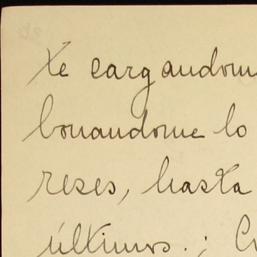 te cargandom
bonandome lo
reses, hasta
últimos.; C